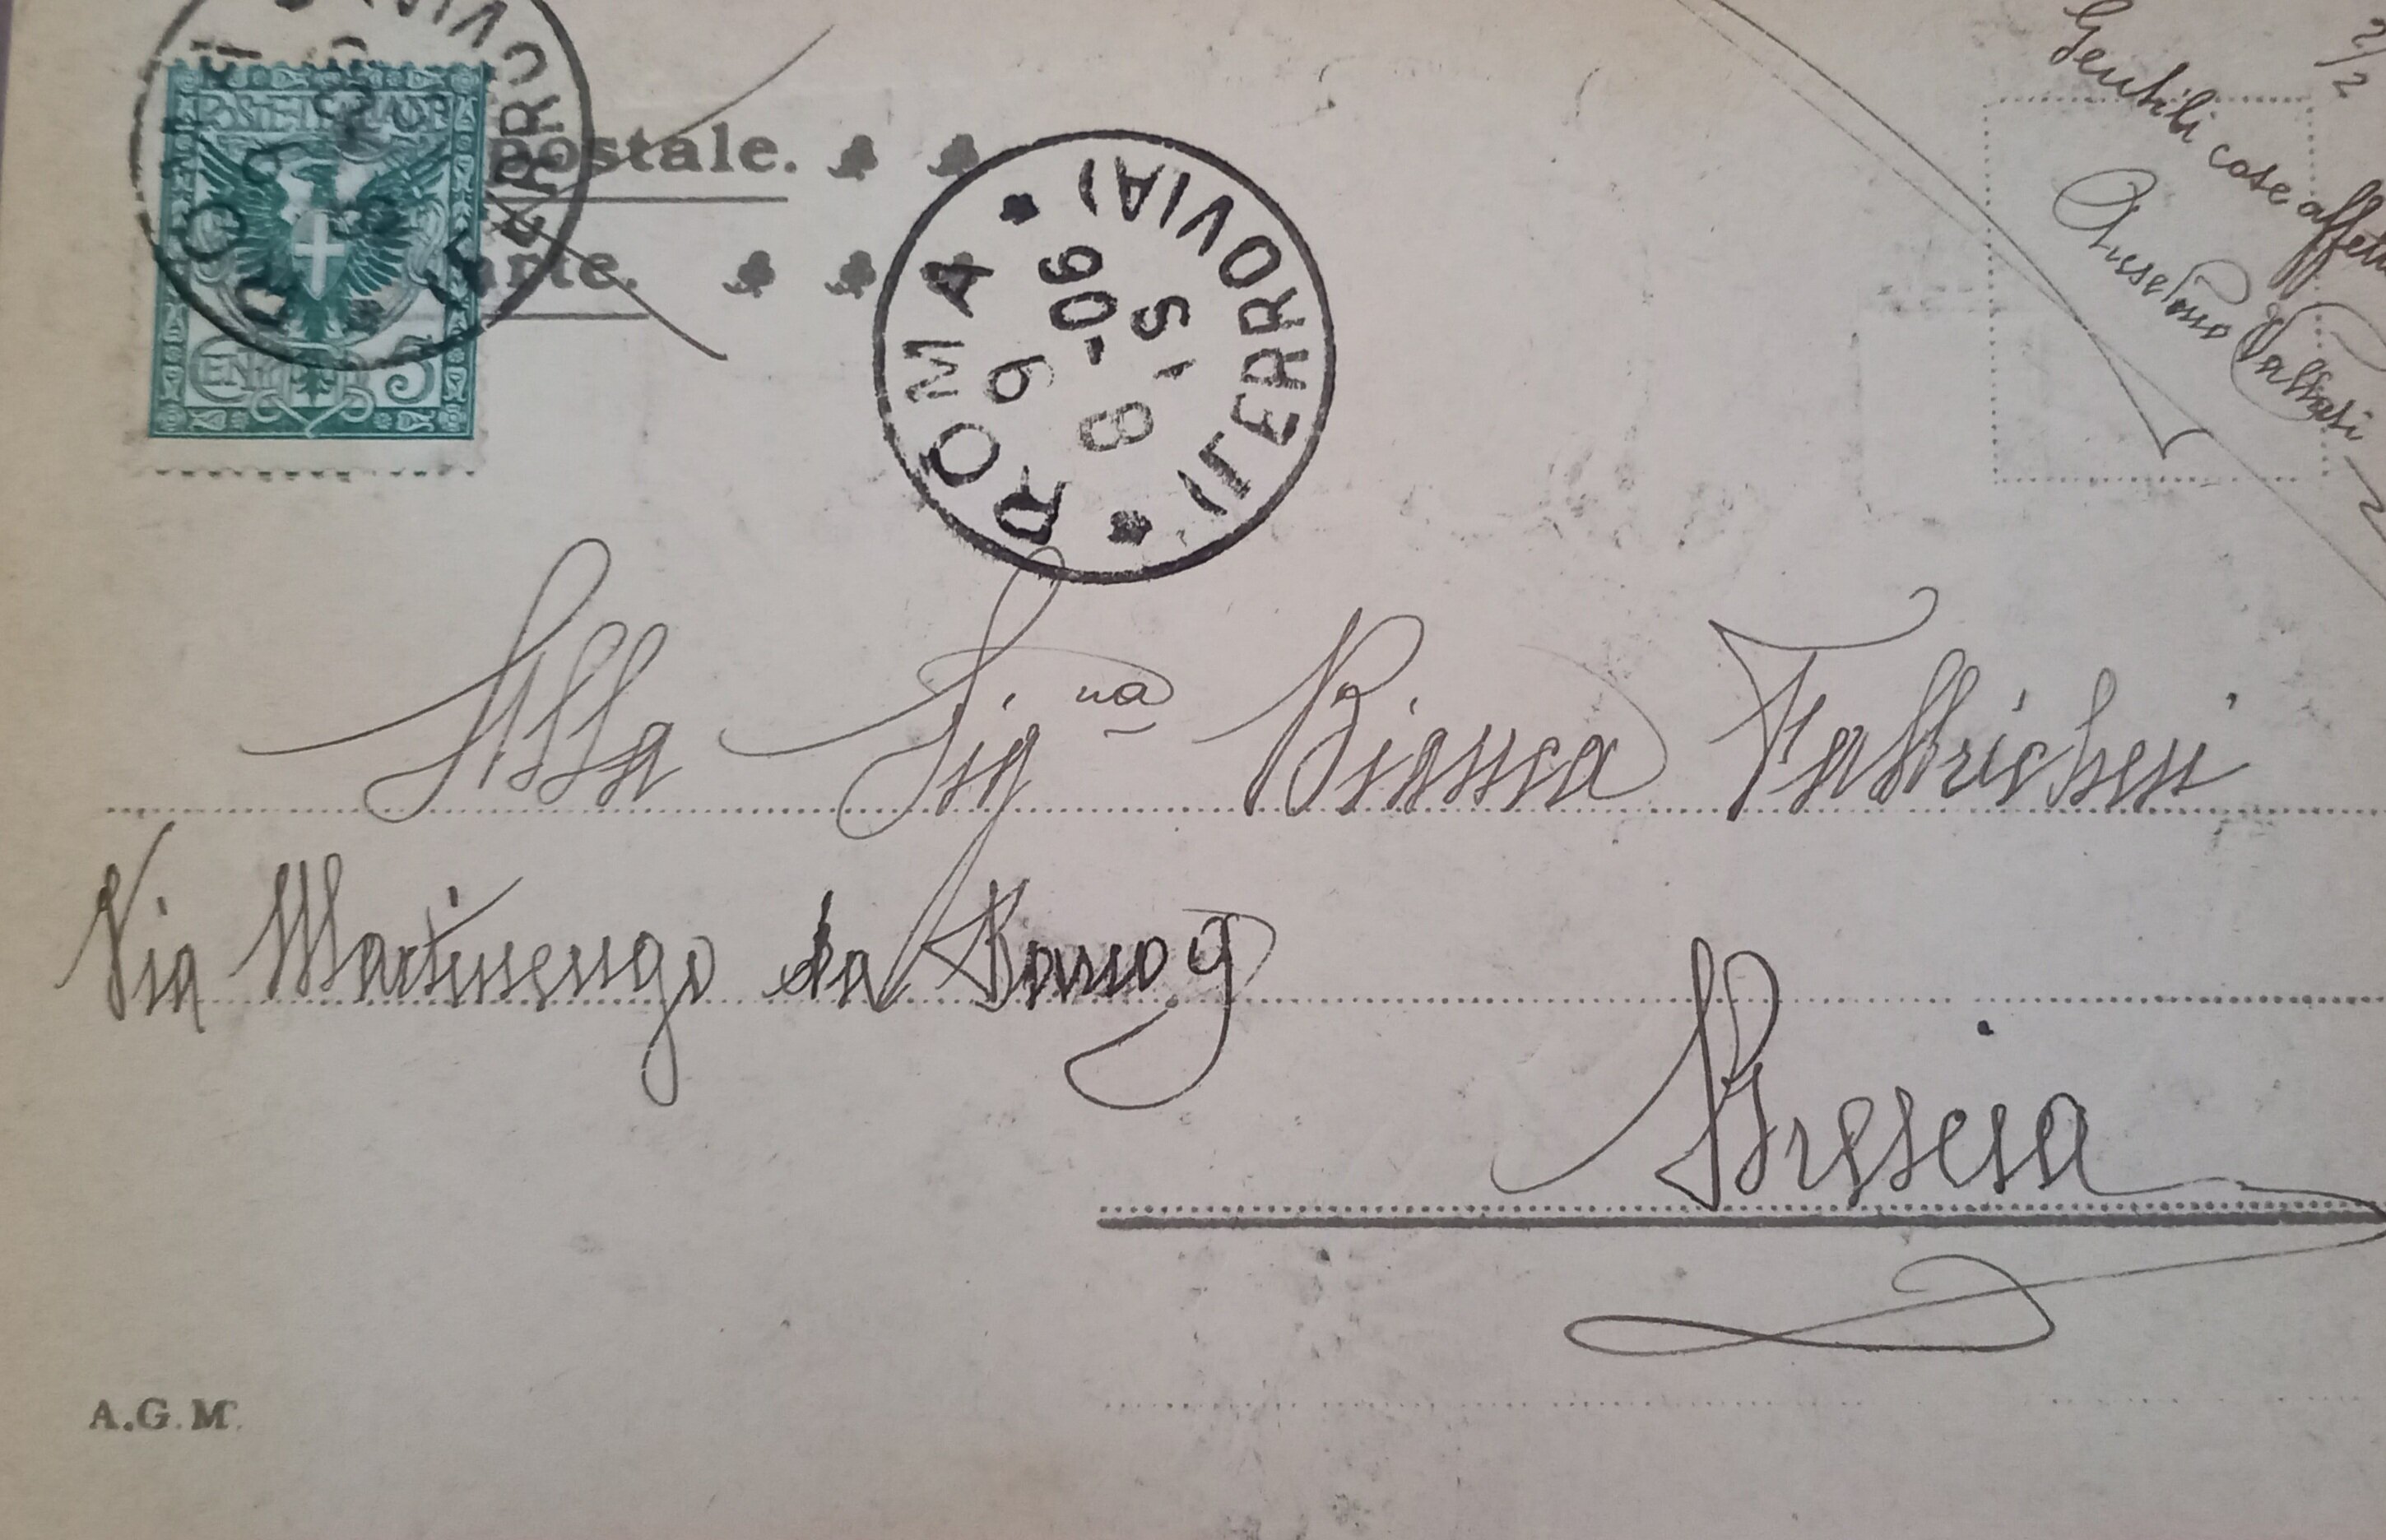 2/2
Gentili cose affett
Anselmo
POSTE ITALIANE
CENT. 5
postale.
arte.
ROMA (FERROVIA)
ROMA * (FERROVIA) *
9 -06
8 S
Alla Sig.na Bianca Fabbrichesi
Via Martinengo da Barco 9
Brescia
A.G.M.